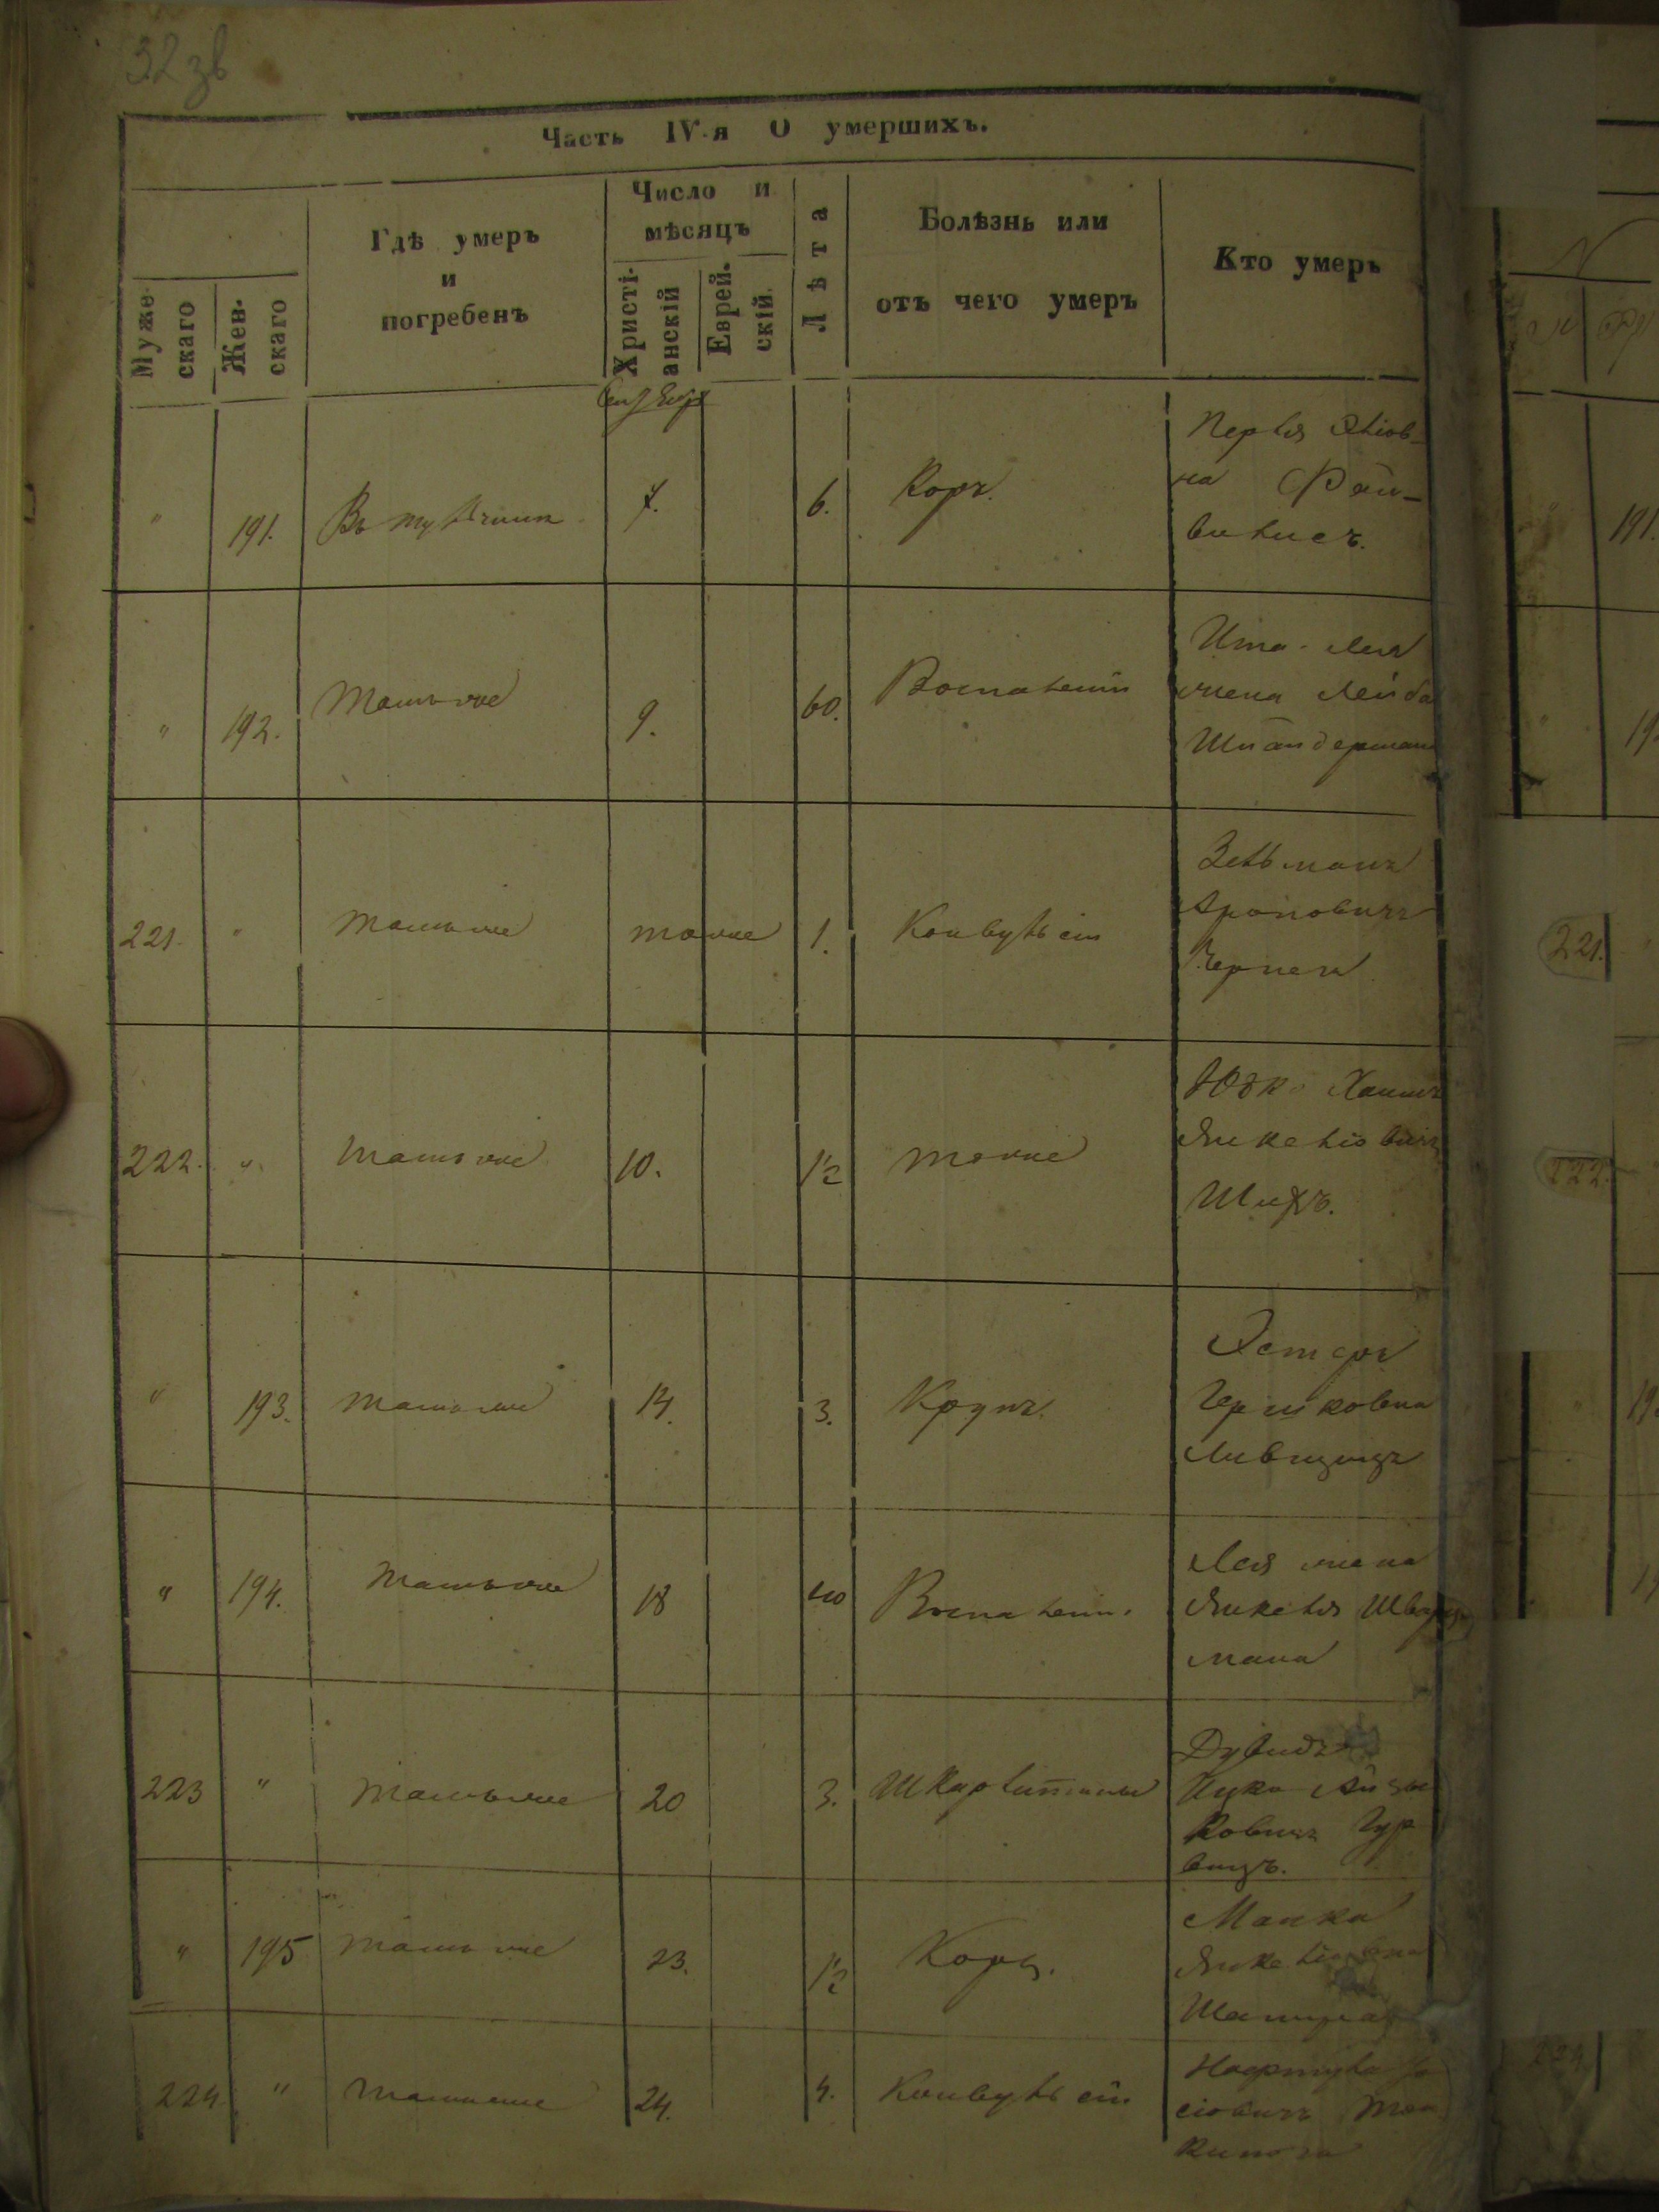 32 зв
Часть IV-я О умершихъ.
Муже-
скаго
Жен-
скаго
Гдѣ умеръ
и
погребенъ
Число и
мѣсяцъ
Христі-
анскій
Еврей-
скій
Лѣта
Болѣзнь или
отъ чего умеръ
Кто умеръ
" 191. Въ 7. 6. Корь.
Перля
на Фай-
вилисъ.
" 192. Тамъ же 9. 60. Воспаленія
Ита-Лея
жена Лейба
Шпандерман
221. " Тамъ же тоже 1. Конвульсіи
Зельманъ
Ароновичъ
222. " Тамъ же 10. 1½ тоже
Хаимъ
Янкеліовичъ
Шифъ.
" 193. Тамъ же 14. 3. Крупъ.
Эстеръ
Гершковна
Лившицъ
" 194. Тамъ же 18 40 Воспаленія.
Лея жена
Янкеля Шварц
мана
223 " Тамъ же 20 3. Шкарлатины
Дувидъ
Ицко Айзи
ковичъ Гур
вицъ.
" 195 Тамъ же 23. 1½ Корь.
Манка
Янкеліовна
Шапира
224 " Тамъ же 24. 4. Конвульсіи
сіовичъ